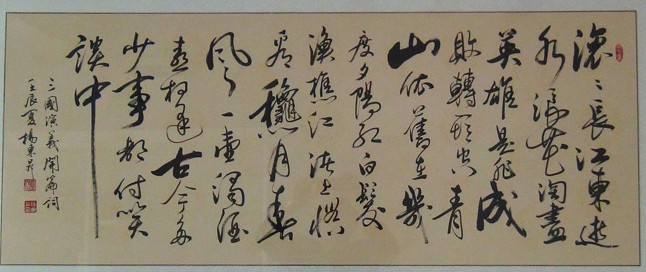 滾〻長江東逝
水浪花淘盡
英雄是非成
敗轉頭空青
山依舊在幾
度夕陽紅白髮
漁樵江渚上慣
看穐月春
風一壺濁酒
喜相逢古今多
少事都付笑
談中
三國演義開篇詞
壬辰夏楊東